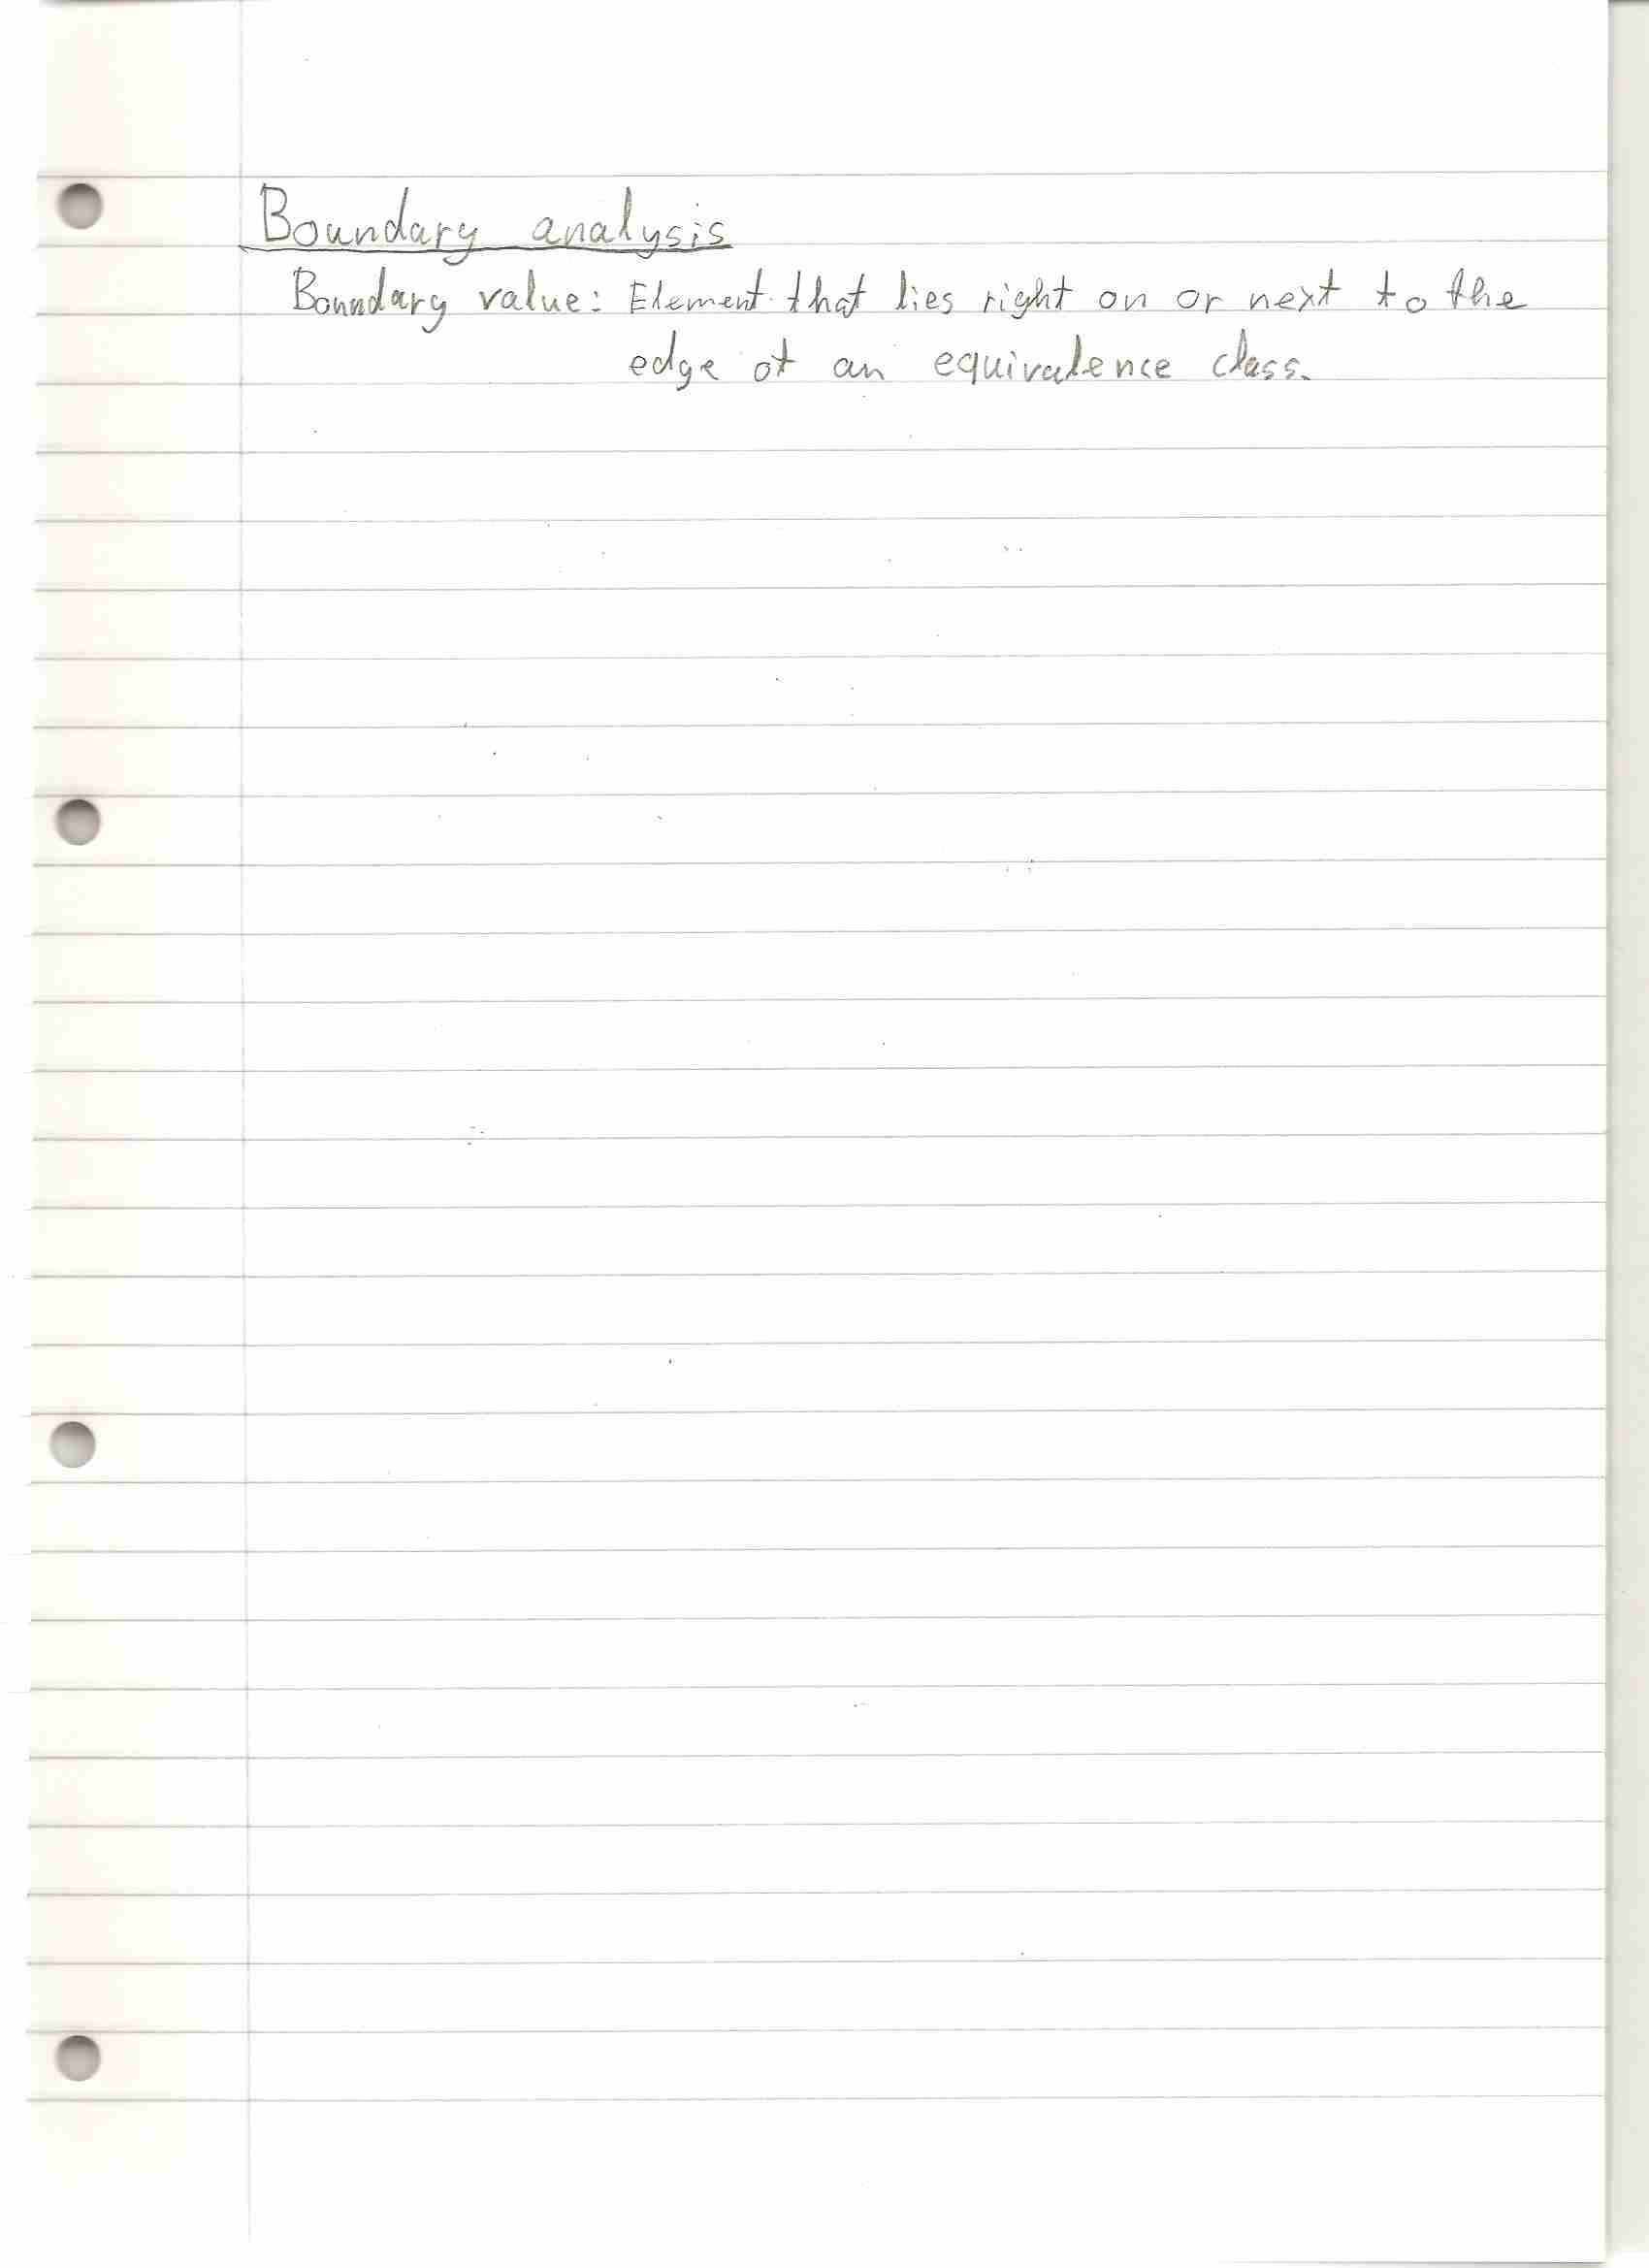 Boundary analysis
Boundary value: Element that lies right on or next to the
edge of an equivalence class.